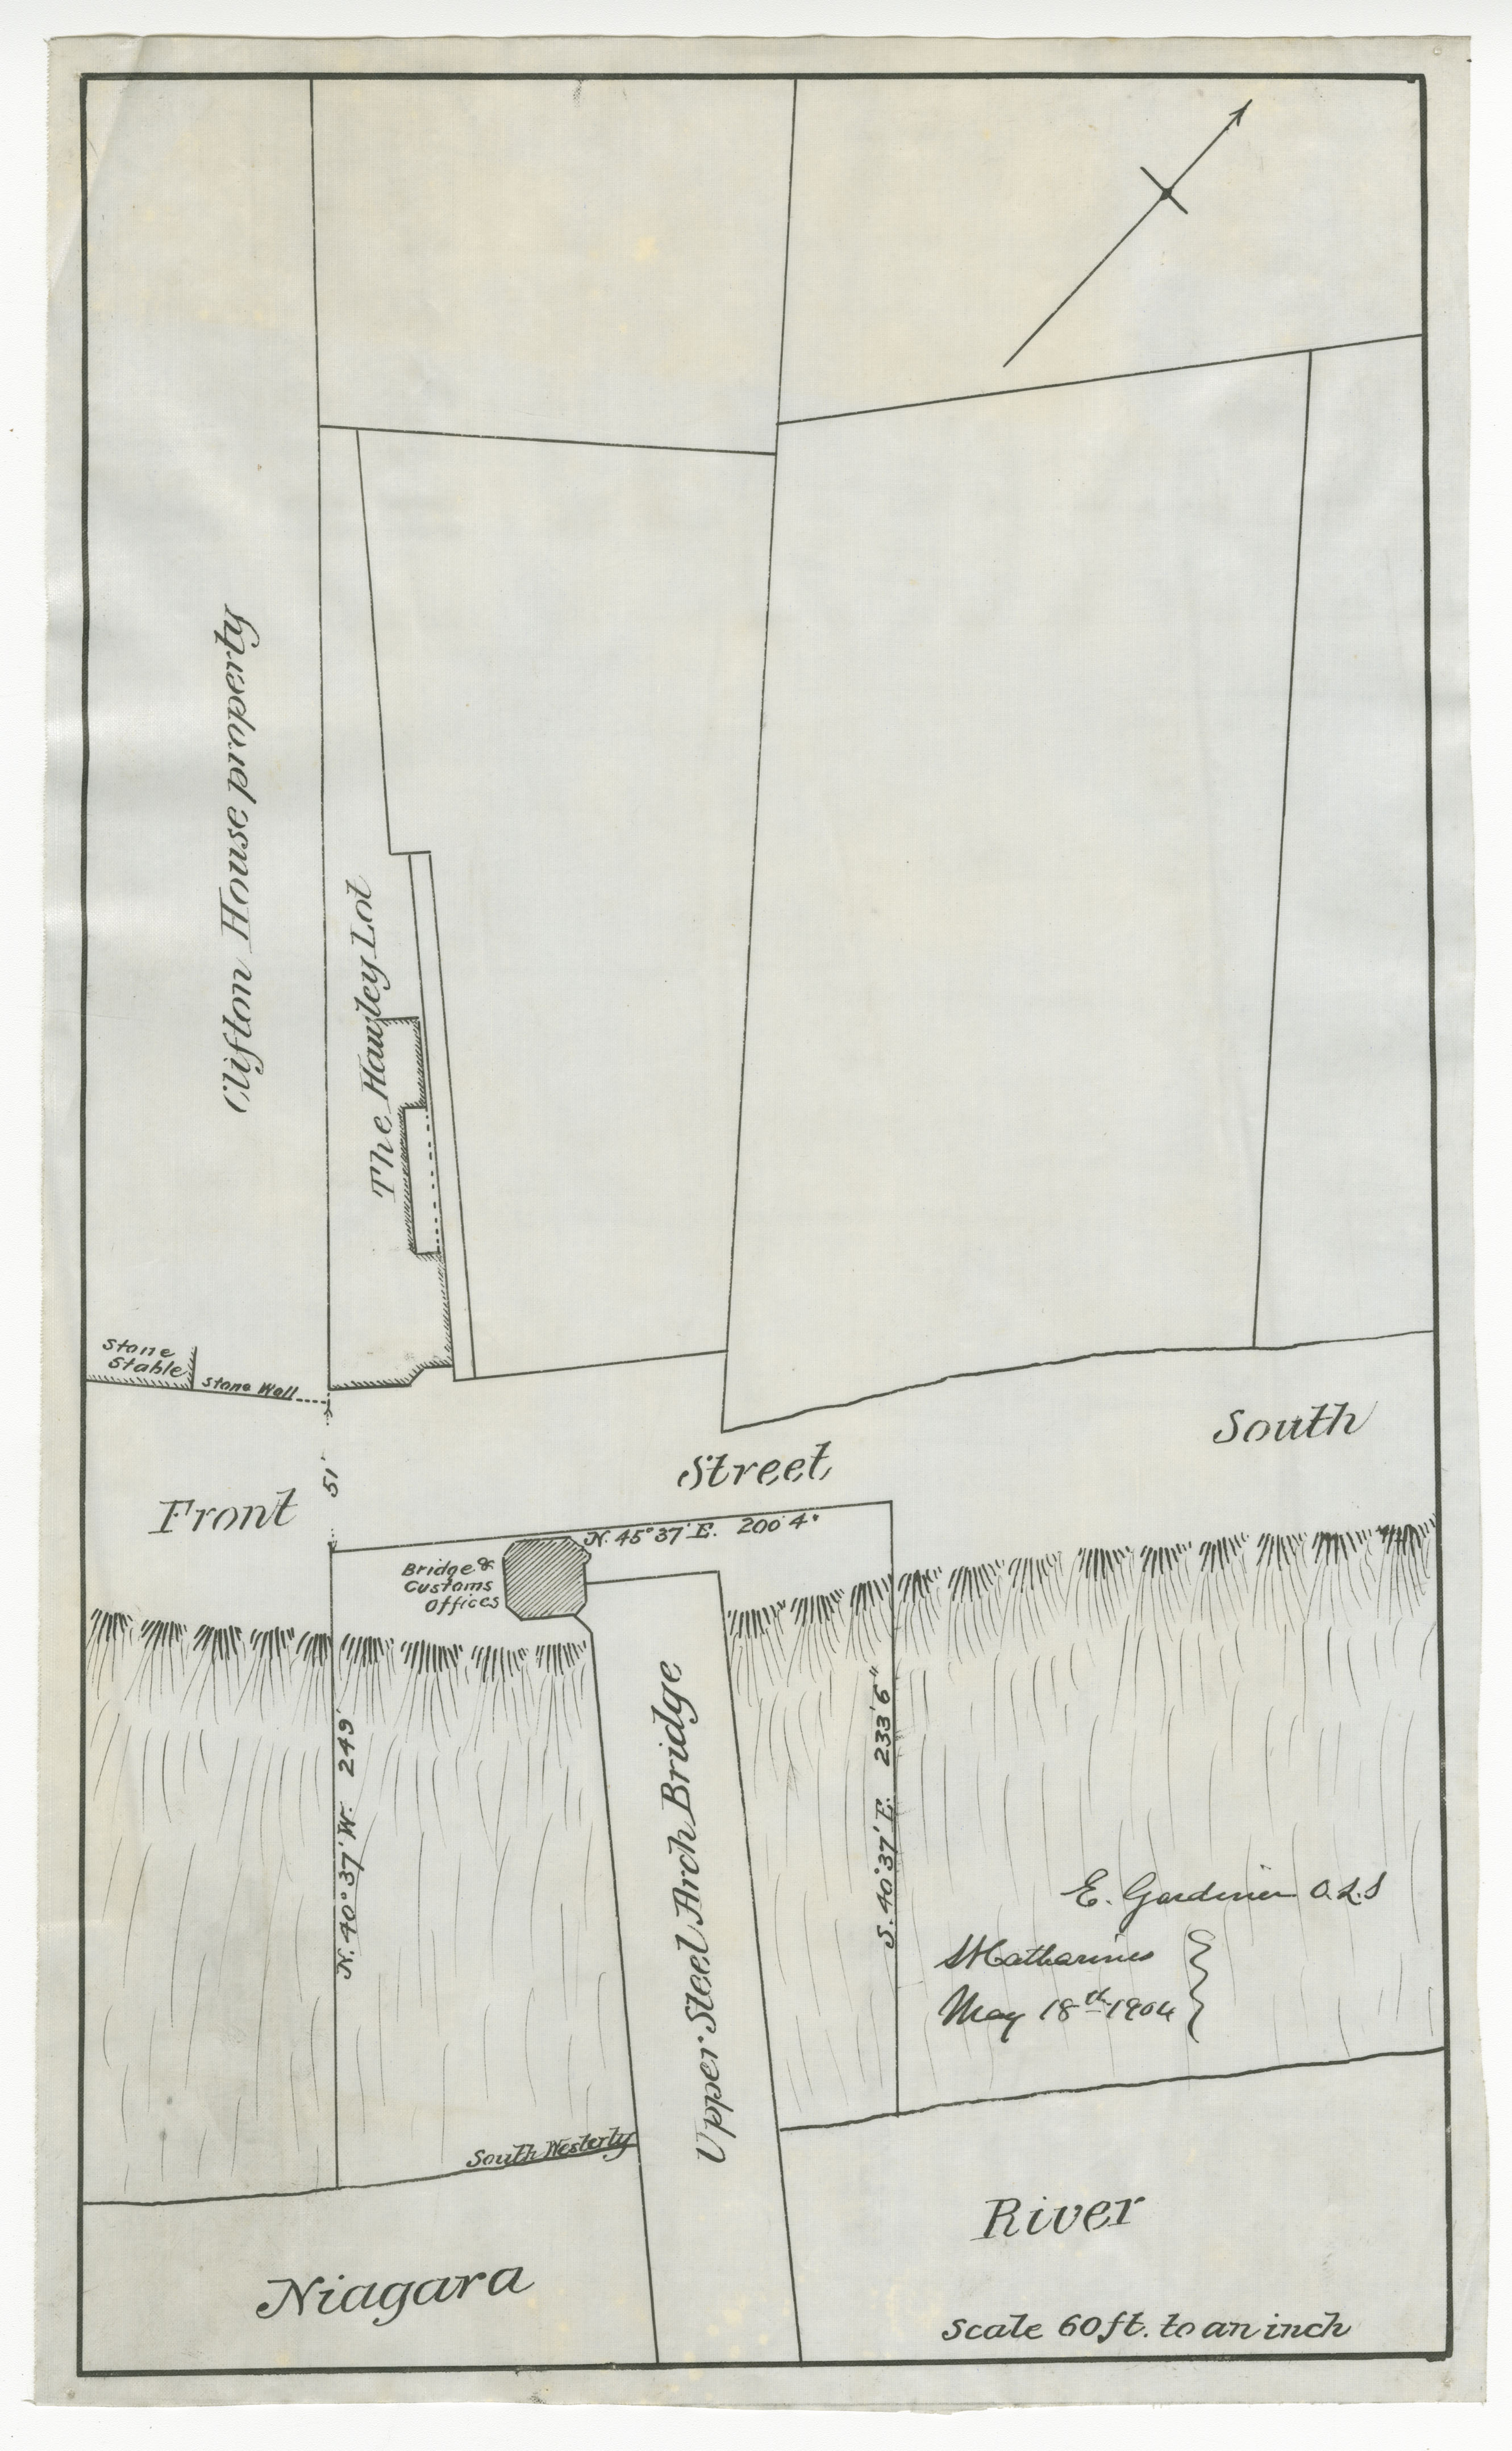 Clifton House property
The Hawley Lot
Stone
Stable
Stone Wall
51'
Front
Street
South
N. 45° 37' E. 200' 4"
Bridge &
Customs
Offices
N. 40° 37' W. 249'
Upper Steel Arch Bridge
S. 40° 37' E. 233' 6"
E. Gardiner O.L.S
St Catharines
May 18th 1904
South Westerly
Niagara
River
Scale 60 ft. to an inch